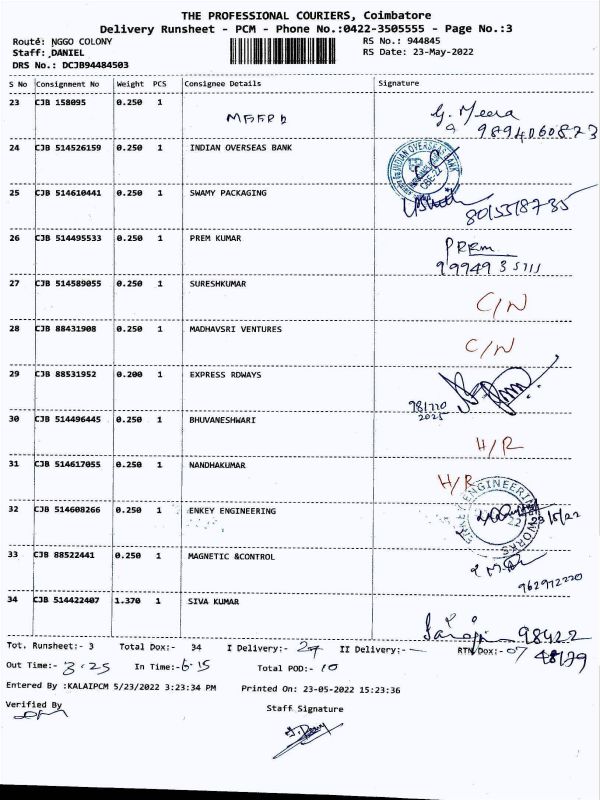 THE PROFESSIONAL COURIERS, Coimbatore
Delivery Runsheet - PCM - Phone No.:0422-3505555 - Page No.:3
Route: NGGO COLONY
RS No.: 944845
Staff: DANIEL
RS Date: 23-May-2022
DRS No.: DCJB94484503
S No Consignment No Weight PCS Consignee Details Signature
23 CJB 158095 0.250 1 G. Meera
9894060823
24 CJB 514526159 0.250 1 INDIAN OVERSEAS BANK INDIAN OVERSEAS BANK
25 CJB 514610441 0.250 1 SWAMY PACKAGING
8015518735
26 CJB 514495533 0.250 1 PREM KUMAR PREm
99949 35711
27 CJB 514589055 0.250 1 SURESHKUMAR C/N
28 CJB 88431908 0.250 1 MADHAVSRI VENTURES C/N
29 CJB 88531952 0.200 1 EXPRESS RDWAYS
981770
2025
30 CJB 514496445 0.250 1 BHUVANESHWARI H/R
31 CJB 514617055 0.250 1 NANDHAKUMAR H/R
32 CJB 514608266 0.250 1 ENKEY ENGINEERING ENKEY ENGINEERING WORKS
23/5/22
33 CJB 88522441 0.250 1 MAGNETIC &CONTROL
962972220
34 CJB 514422407 1.370 1 SIVA KUMAR
98422
48179
Tot. Runsheet:- 3 Total Dox:- 34 I Delivery:- 27 II Delivery:- — RTN Dox:- 07
Out Time:- 3.25 In Time:- 6.15 Total POD:- 10
Entered By :KALAIPCM 5/23/2022 3:23:34 PM Printed On: 23-05-2022 15:23:36
Verified By
Staff Signature